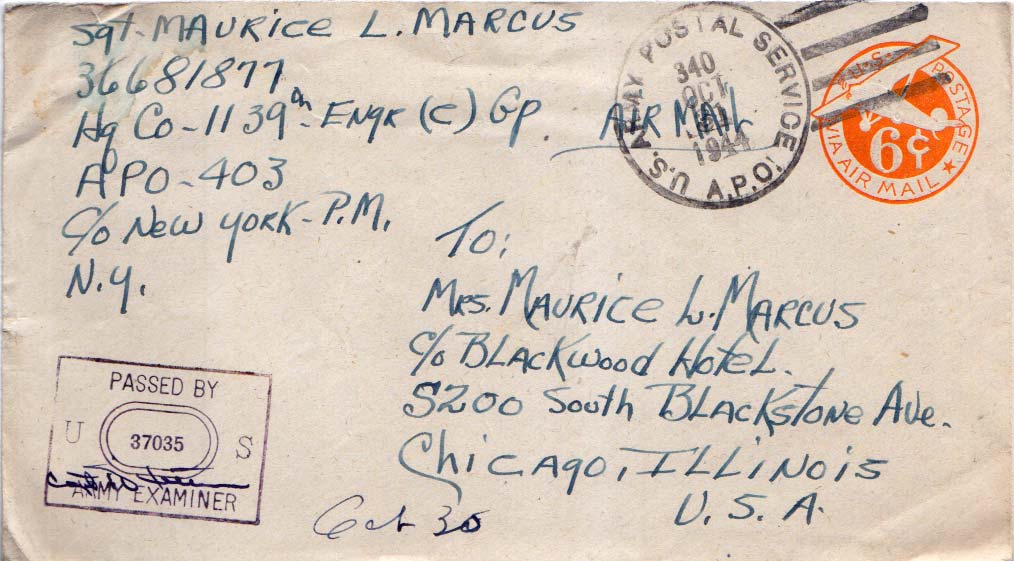 Sgt. MAURICE L. MARCUS
36681877
Hq Co - 1139th Engr (C) Gp.
APO - 403
c/o New York - P.M.
N.Y.
AIR MAIL
U.S. ARMY POSTAL SERVICE
A.P.O.
340
OCT
1944
U.S. POSTAGE
6¢
VIA AIR MAIL
To:
Mrs. MAURICE L. MARCUS
c/o BLACKWOOD HOTEL.
5200 South BLACKSTONE Ave.
CHICAGO, ILLINOIS
U.S.A.
PASSED BY
U 37035 S
ARMY EXAMINER
Oct 30